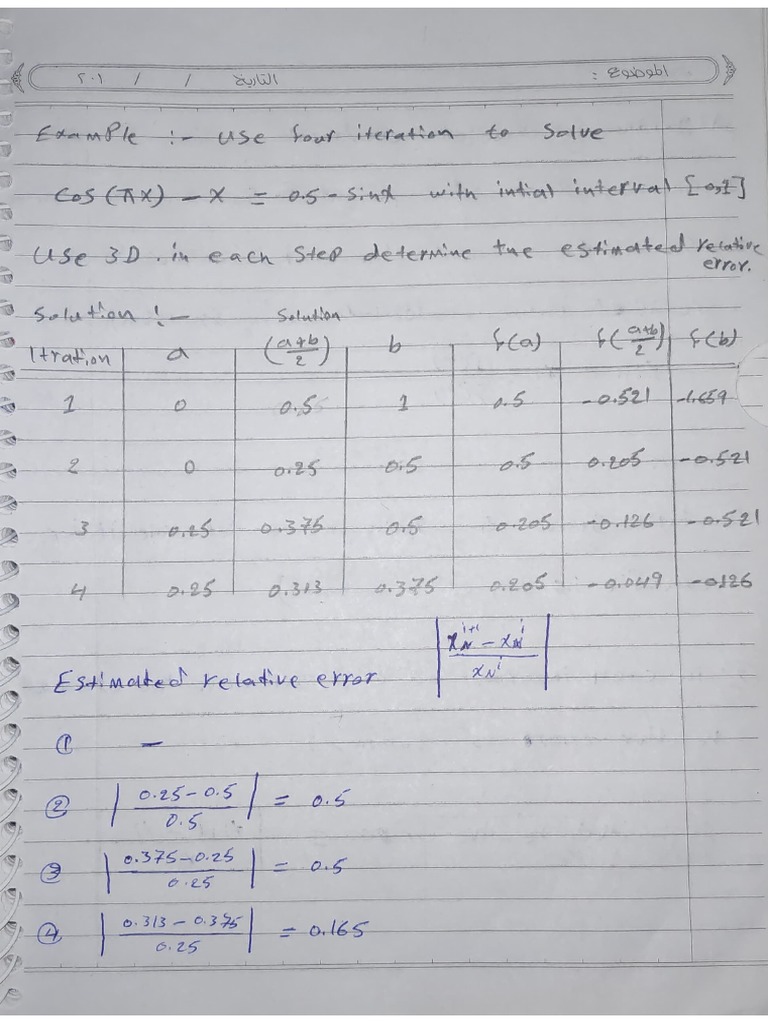 الموضوع :
التاريخ / / ٢٠١
Example :- Use four iteration to solve
Cos(πx) - x = 0.5 - sinx with intial interval [0,1]
Use 3D. in each step determine the estimated relative error.
Solution :- Solution
Itration a (a+b/2) b f(a) f(a+b/2) f(b)
1 0 0.5 1 0.5 -0.521 -1.659
2 0 0.25 0.5 0.5 0.205 -0.521
3 0.25 0.375 0.5 0.205 -0.126 -0.521
4 0.25 0.313 0.375 0.205 -0.049 -0.126
Estimated relative error |xN^i+1 - xN^i / xN^i|
① -
② |0.25-0.5 / 0.5| = 0.5
③ |0.375-0.25 / 0.25| = 0.5
④ |0.313-0.375 / 0.25| = 0.165